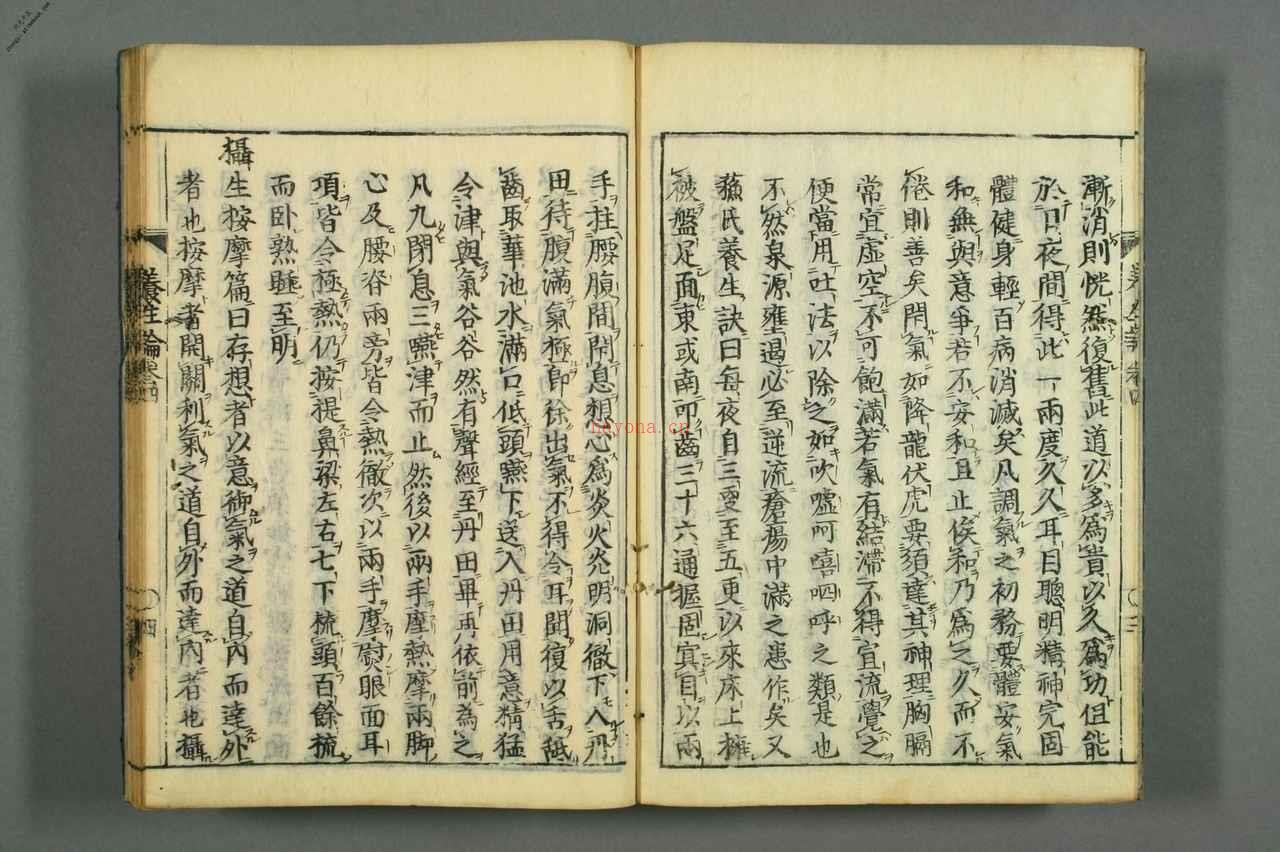 漸消則恍然復舊此道以多爲貴以久爲功但能
於日夜間得此一兩度久久耳目聰明精神完固
體健身輕百病消滅矣凡調氣之初務要體安氣
和無與意爭若不安和且止俟和乃爲之久而不
倦則善矣閉氣如降龍伏虎要須達其神理胸膈
常宜虛空不可飽滿若氣有結滯不得宣流覺之
便當用吐法以除之如吹噓呵嘻呬呼之類是也
不然泉源壅遏必至逆流瘡瘍中滿之患作矣又
蘓氏養生訣曰每夜自三更至五更以來床上擁
被盤足面東或南叩齒三十六通握固寘目以兩
手拄腰腹間閉息想心爲炎火炎明洞徹下入丹
田待腹滿氣極卽徐出氣不得令耳聞復以舌舐
齒取華池水滿口低頭嚥下送入丹田用意猜猛
令津與氣谷谷然有聲經至丹田畢再依前為之
凡九閉息三嚥津而止然後以兩手摩熱摩兩脚
心及腰脊兩旁皆令熱徹次以兩手摩熨眼面耳
項皆令極熱仍按提鼻梁左右七下梳頭百餘梳
而臥熟睡至明
攝生按摩篇曰存想者以意御氣之道自內而達外
者也按摩者開關利氣之道自外而達內者也攝
卷四
四
hayona.cn